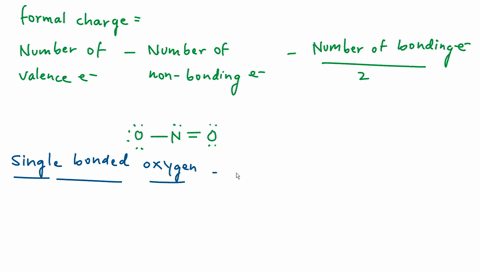 formal charge =
Number of valence e- − Number of non-bonding e- − Number of bonding e- / 2
:Ö — N̈ = Ö
Single bonded oxygen -